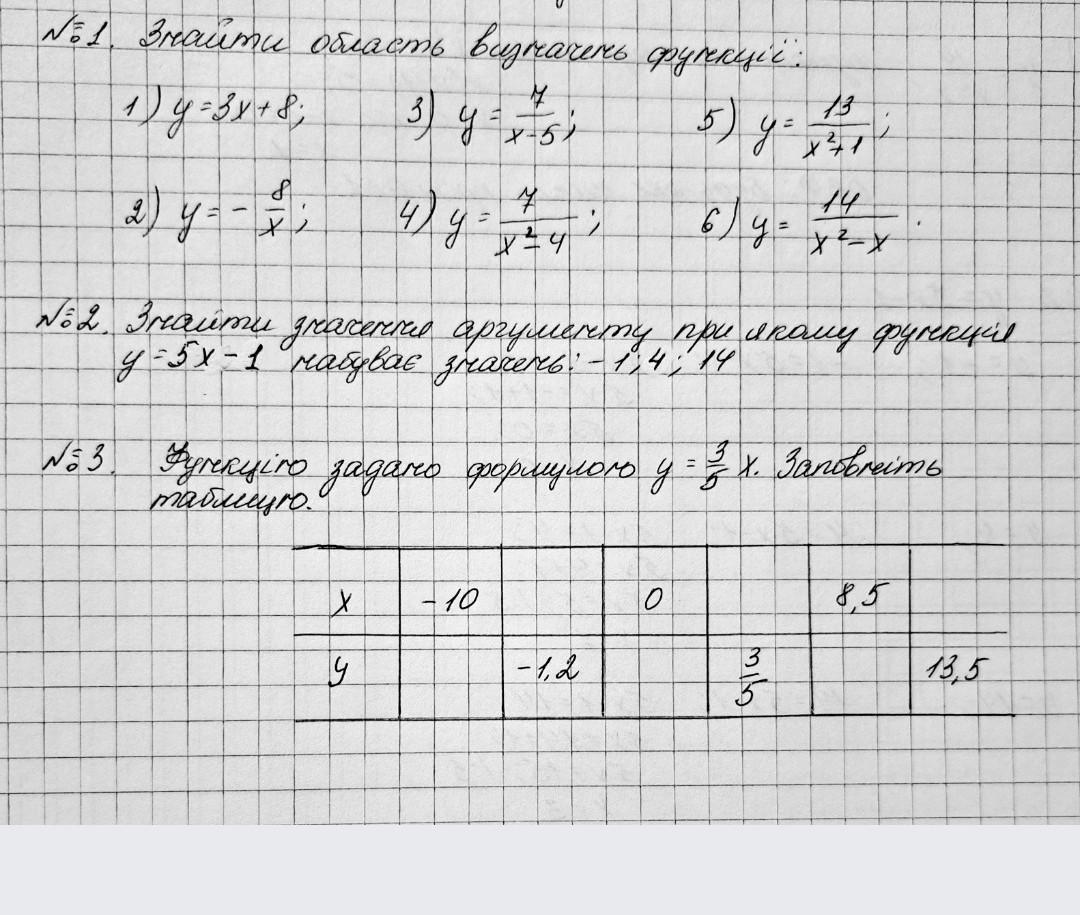 №1. Знайти область визначень функції:
1) y=3x+8; 3) y = 7/(x-5); 5) y = 13/(x²+1);
2) y = - 8/x; 4) y = 7/(x²-4); 6) y = 14/(x²-x).
№2. Знайти значення аргументу при якому функція
y=5x-1 набуває значень: -1; 4; 14
№3. Функцію задано формулою y = 3/5 x. Заповніть
таблицю.
x -10 0 8,5
y -1,2 3/5 13,5